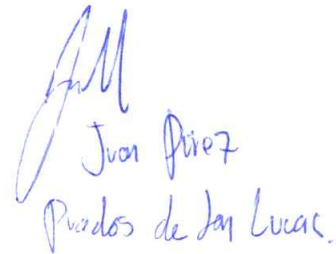 Juan Pérez
Prados de San Lucas.